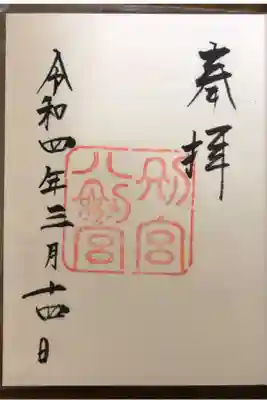 奉拝
別宮
八剣宮
令和四年三月十四日